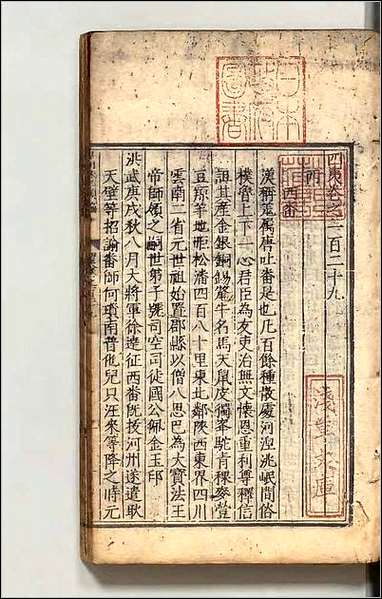 四夷卷之二百二十九
西番
漢稱羗屬唐吐番是也凡百餘種散處河湟洮岷間俗
樸魯上下一心君臣為友吏治無文懷恩重利尊釋信
詛其產金銀銅錫犛牛名馬天鼠皮獨峯駝青稞麥豈
豆疾羊地距松潘四百八十里東北鄰陝西東界四川
雲南二省元世祖始置郡縣以僧八思巴為大寶法王
帝師領之嗣世第子號司空司徒國公佩金玉印
洪武庚戌秋八月大將軍徐達征西番既拔河州遂遣耿
天璧等招諭番師何瑣南普他兒只汪來等降之時元
淺草文庫
日本
圖書